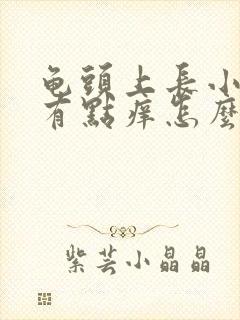 龟頭上長小
有點痒怎麼
紫芸小晶晶